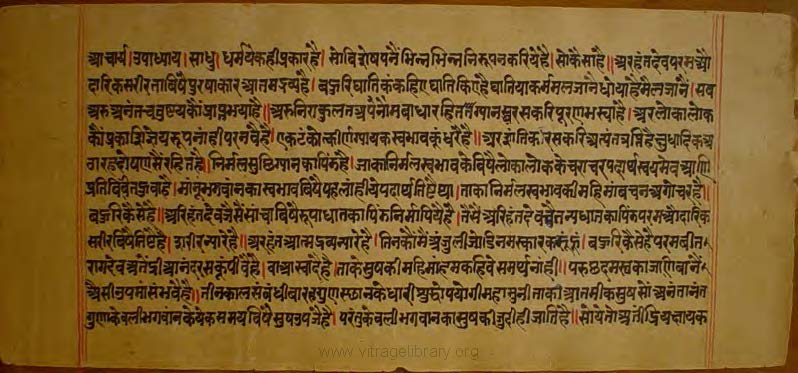 आचार्य। उपाध्याय। साधु। धर्म ये कही प्रकार है। सो विशेषपनैं भिन्न भिन्न निरुपन करिये है। सो कैसा है॥ अरहंत देव परम औ
दारिक सरीर ता विषै पुरषाकार आतम द्रव्य है। बहुरि घातिक कहिए घाति किए है घातिया कर्म मल जानै धोया है मल जानैं।
अरु अनंत चतुष्टय कौं प्राप्त भया है। निराकुलत बाधा रहित ज्ञान स्वरस करि पूरण भस्या है। अर लोकालोक
कौं प्रकासि ज्ञेय रूप नांही परनवै है। एक टंकोत्कीर्ण ग्यायक स्वभाव कूं धरै है॥ अर सांतिक रस करि अत्यंत त्रप्ति है क्षुधादिक अ
ठारह दोषण सै रहित है। निर्मल ग्यान का पिंड है। जाका निर्मल स्वभाव के विषै लोकालोक के चराचर पदार्थ स्वयमेव आणि
प्रतिबिंबित हुवा है। मानूं भगवान का स्वभाव विषै पहलां ही ये पदार्थ तिष्टै था। ताका निर्मल स्वभाव की महिमा बचन अगोचर है॥
बहुरि कैसे है॥ अरिहंत देव जैसै सांचा विषै रुपा धात का पिंड निर्मापिये है॥ तैसै अरिहंत देव चैतन्य धात का पिंड परम औदारिक
सरीर विषै तिष्टै है। सरीर न्यारे है॥ अरहंत आत्म द्रव्य न्यारे है। तिन कौं मैं अंजुली जोडि नमस्कार करूं हूं। बहुरि कैसे है परम बीत
राग देव अनेंद्री आनंद रस कूं पीवै है। वा आस्वादै है। ताके सुष की महिमा हम कहिवे समर्थ नांही॥ परु छदमस्त का जाणिबा नैं
औसी उपमा संभवै है॥ तीन काल संबंधी बारह गुणस्छान के धारी शुद्धोपयोगी महामुनी ताकी आतमीक सुष सों अनंतानंत
गुणा केवली भगवान के येक समय विषै सुष उपजै है। परंतु केवली भगवान का सुष की जुदी ही जाति है॥ सो ये तो अतींद्रिय क्षायक
www.vitragelibrary.org